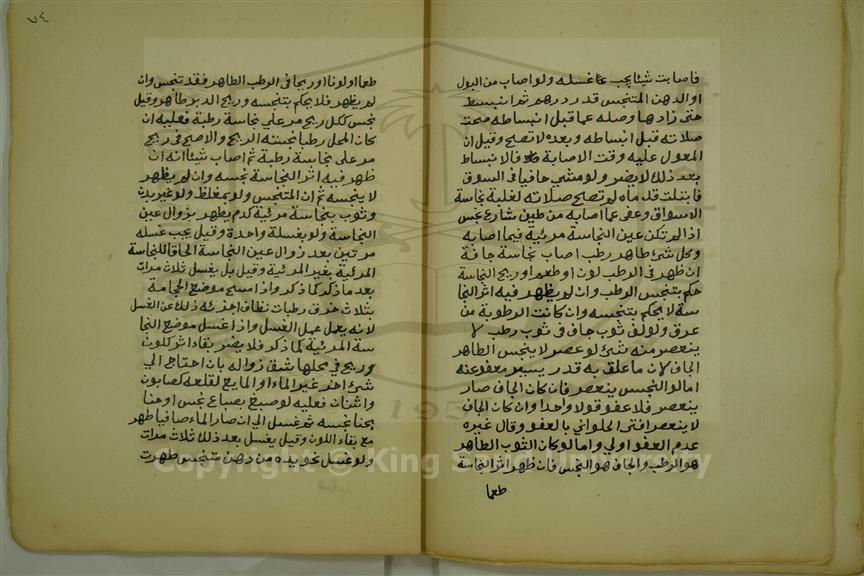 فاصابت شيئا يجب غسله ولو اصاب من البول
او الدهن المتنجس قدر درهم ثم انبسط
حتى زاد ها وصله عما قبل انبساطه صحت
صلاته قبل انبساطه وبعده لا تصح وقيل ان
المعول عليه وقت الاصابة فالانبساط
بعد ذلك لا يضر ولو مشى حافيا في السوق
فابتلت قدماه لم تصح صلاته لغلبة نجاسة
الاسواق وعفو عما اصابه من طين شارع نجس
اذا لم تكن عين النجاسة مرئية فيما اصابه
وكل شئ طاهر رطب اصاب نجاسة جافة
ان ظهر في الرطب لون او طعم او ريح النجاسة
حكم بتنجس الرطب وان لم يظهر فيه اثر النجا
سة لا يحكم بتنجسه وان كانت الرطوبة من
عرق ولو لف ثوب جاف في ثوب رطب لا
ينعصر منه شئ لو عصر لا ينجس الطاهر
الجاف لان ما علق به قدر يسير معفو عنه
اما لو النجس ينعصر فان كان الجاف صار
ينعصر فلا عفو قولا واحدا وان كان الجاف
لا ينعصر افتى الحلواني بالعفو وقال غيره
عدم العفو اولى واما لو كان الثوب الطاهر
هو الرطب والجاف هو النجس فان ظهر اثر النجاسة
طعما
٧٤
طعما او لونا او ريحا في الرطب الطاهر فقد تنجس وان
لم يظهر فلا يحكم بتنجسه وريح الدبر طاهر وقيل
نجس ككل ريح مر على نجاسة رطبة فعليه ان
كان المحل رطبا نجسته الريح والاصح في ريح
مر على نجاسة رطبة ثم اصاب شيئا انه ان
ظهر فيه اثر النجاسة نجسه وان لم يظهر
لا ينجسه ثم ان المتنجس ولو بمغلظ ولو غير بدن
وثوب بنجاسة مرئية كدم يطهر بزوال عين
النجاسة ولو بغسلة واحدة وقيل يجب غسله
مرتين بعد زوال عين النجاسة الحاقا للنجاسة
المرئية بغير المرئية وقيل بل يغسل ثلاث مرات
بعد ما ذكر كما ذكر واذا مسح موضع الحجامة
بثلاث خرق رطبات نظاف اجزئه ذلك عن الغسل
لانه يعمل عمل الغسل واذا غسل موضع النجا
سة المرئية كما ذكر فلا يضر بقاء اثر كلون
وريح في محلها شق زواله بان احتاج الى
شئ اخر غير الماء او المايع لقلعه كصابون
واشنان فعليه لو صبغ بصباغ نجس او حنا
بحنا نجسه ثم غسل الى ان صار الماء صافيا طهر
مع بقاء اللون وقيل يغسل بعد ذلك ثلاث مرات
ولو غسل نحو يده من دهن متنجس طهرت
Copyright © King Saud University
195